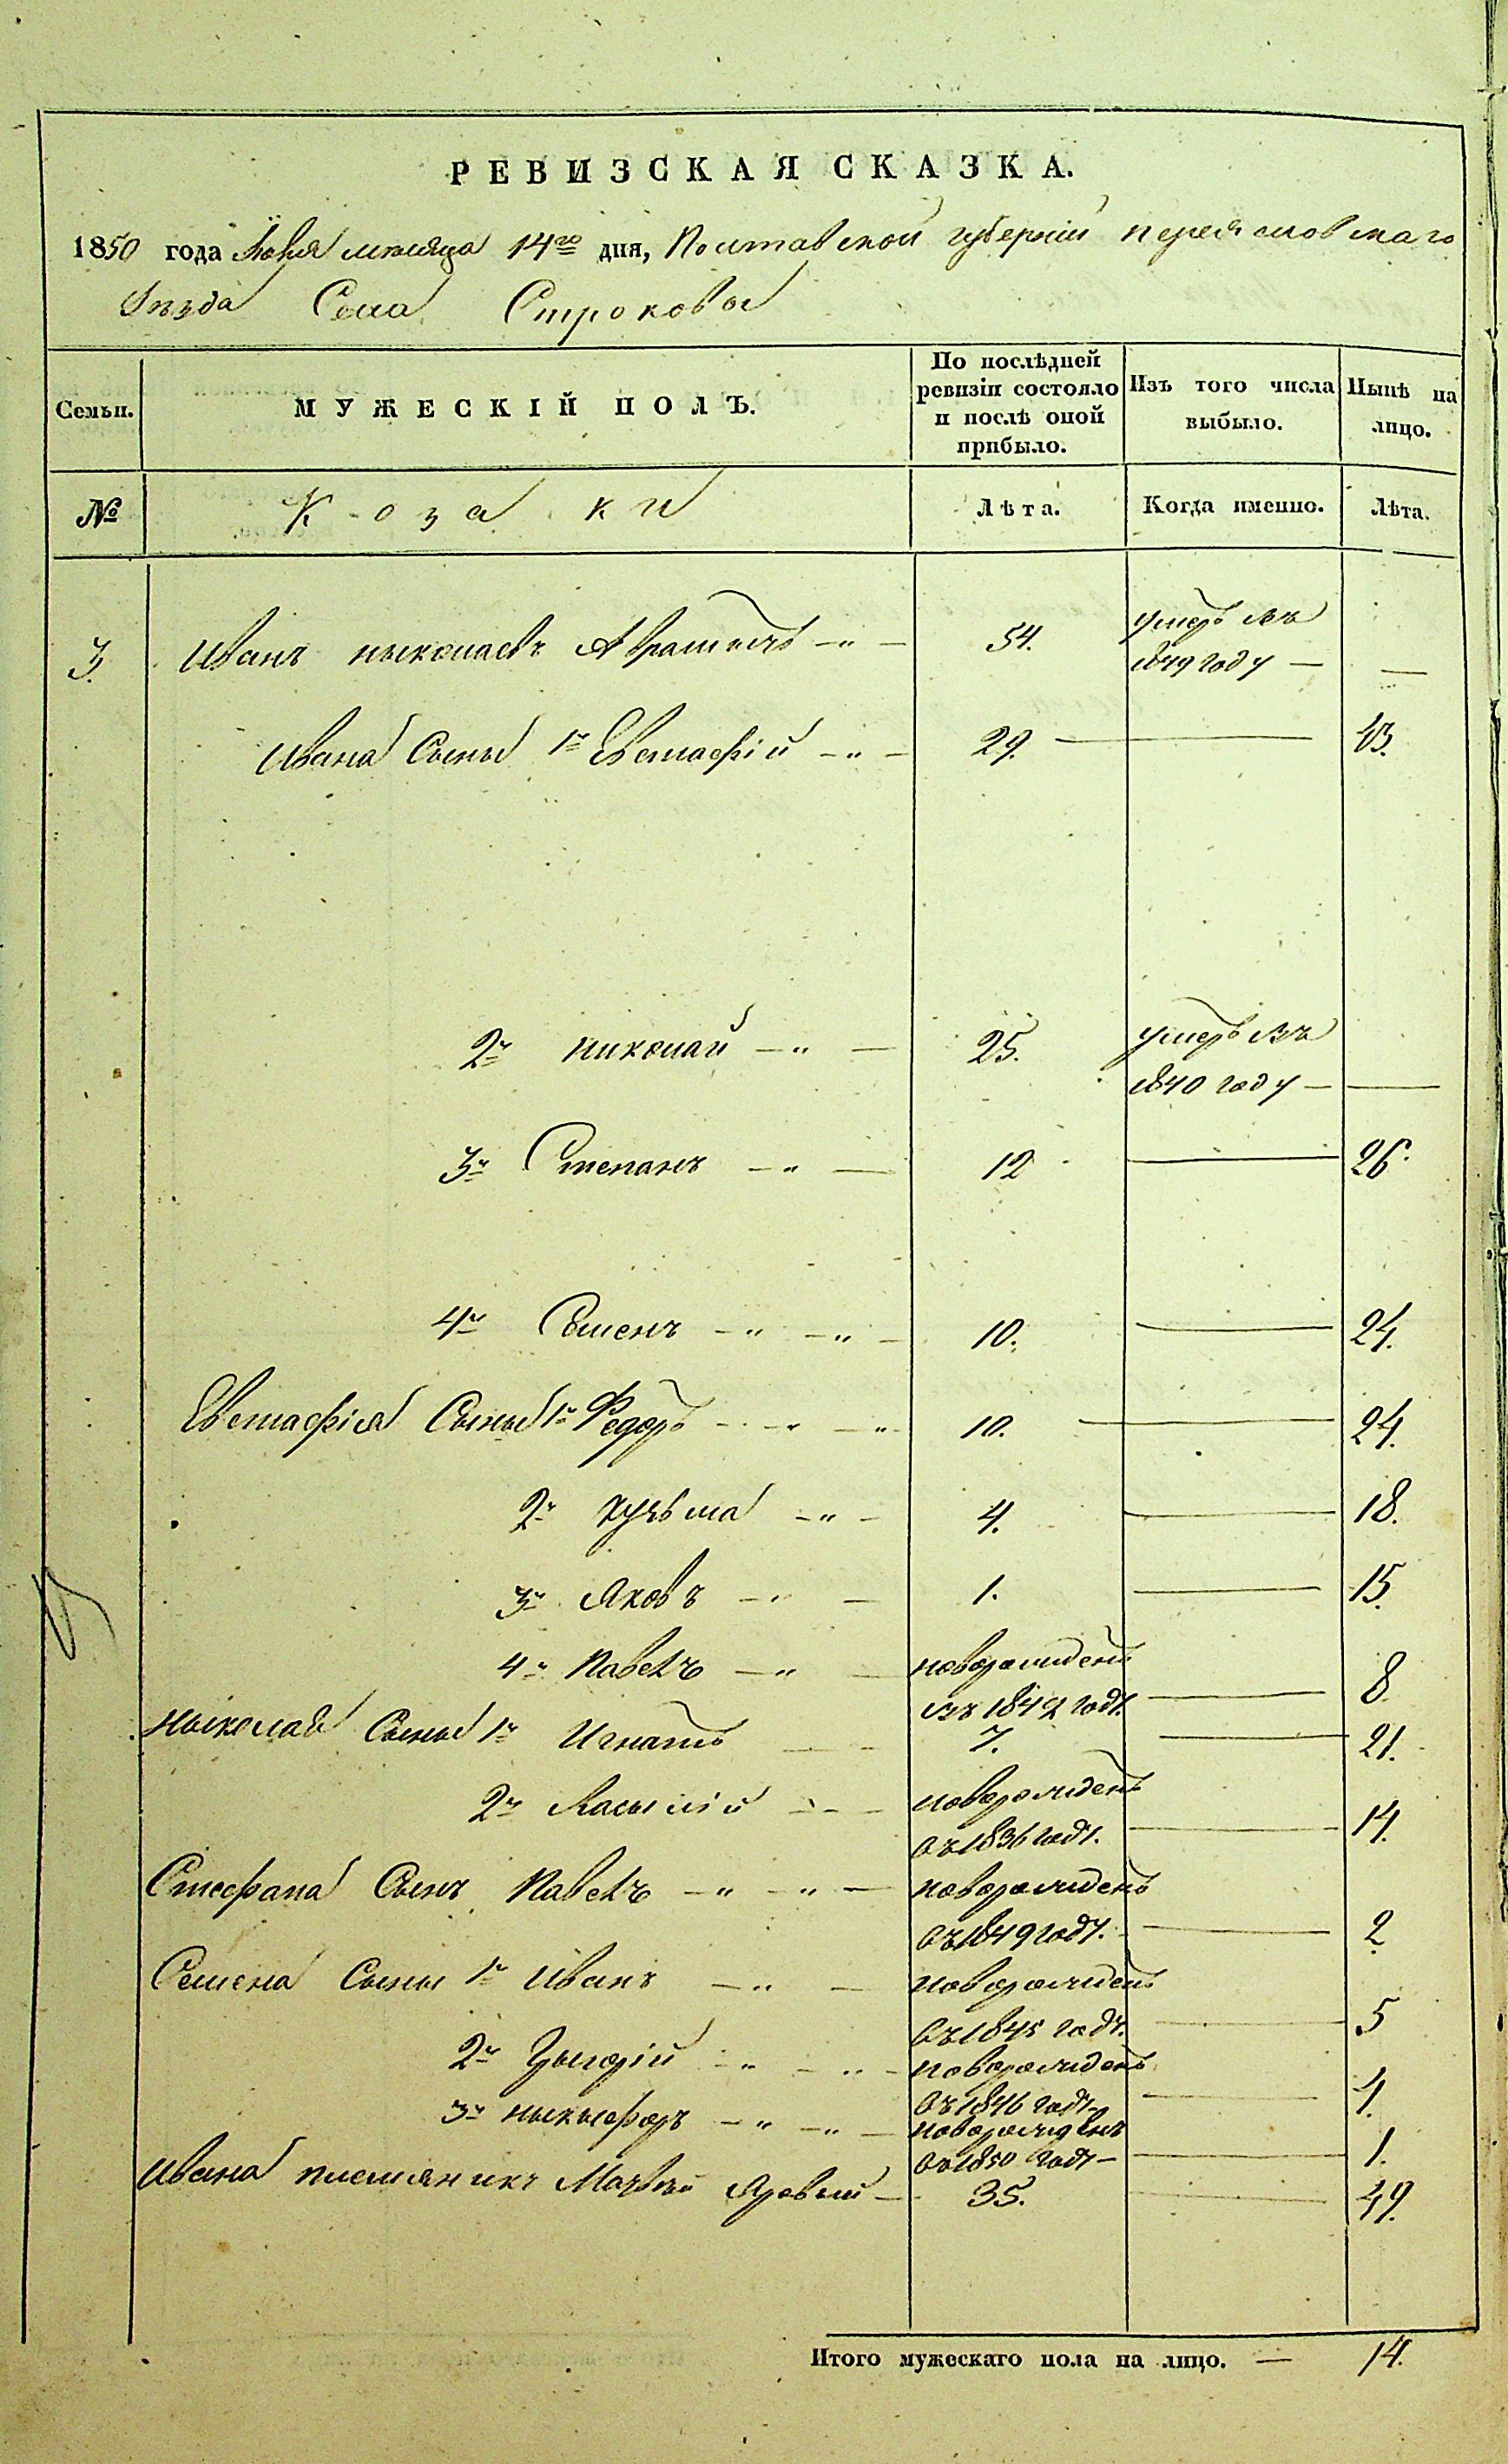 РЕВИЗСКАЯ СКАЗКА.
1850 года Ноября месяца 14го дня, Полтавской губерніи переясловскаго
Уѣзда Села Строковы
Семьи.
МУЖЕСКІЙ ПОЛЪ.
По послѣдней ревизіи состояло и послѣ оной прибыло.
Изъ того числа выбыло.
Нынѣ на лицо.
№
Козаки
Лѣта.
Когда именно.
Лѣта.
3. Иванъ ныколаевъ 54. умеръ въ
1849 году
Ивана Сыны 1й Евстафій 29. 43.
2й николай 25. умеръ въ
1840 году
3й Степанъ 12 26.
4й Семенъ 10. 24.
Евстафія Сыны 1й Федоръ 10. 24.
2й Кузьма 4. 18.
3й Яковъ 1. 15.
4й Павелъ новорожденъ
въ 1842 году. 8
ныколая Сыны 1й Игнатъ 7. 21.
2й Васылій новорожденъ
въ 1836 году. 14.
Стефана Сынъ Павелъ новорожденъ
въ 1849 году. 2
Семена Сыны 1й Иванъ новорожденъ
въ 1845 году. 5
2й новорожденъ
въ 1846 году 4.
3й ныкыфоръ новорожденъ
въ 1850 году 1.
Ивана племяникъ Матвѣй Яровый 35. 49.
Итого мужескаго пола на лицо. — 14.